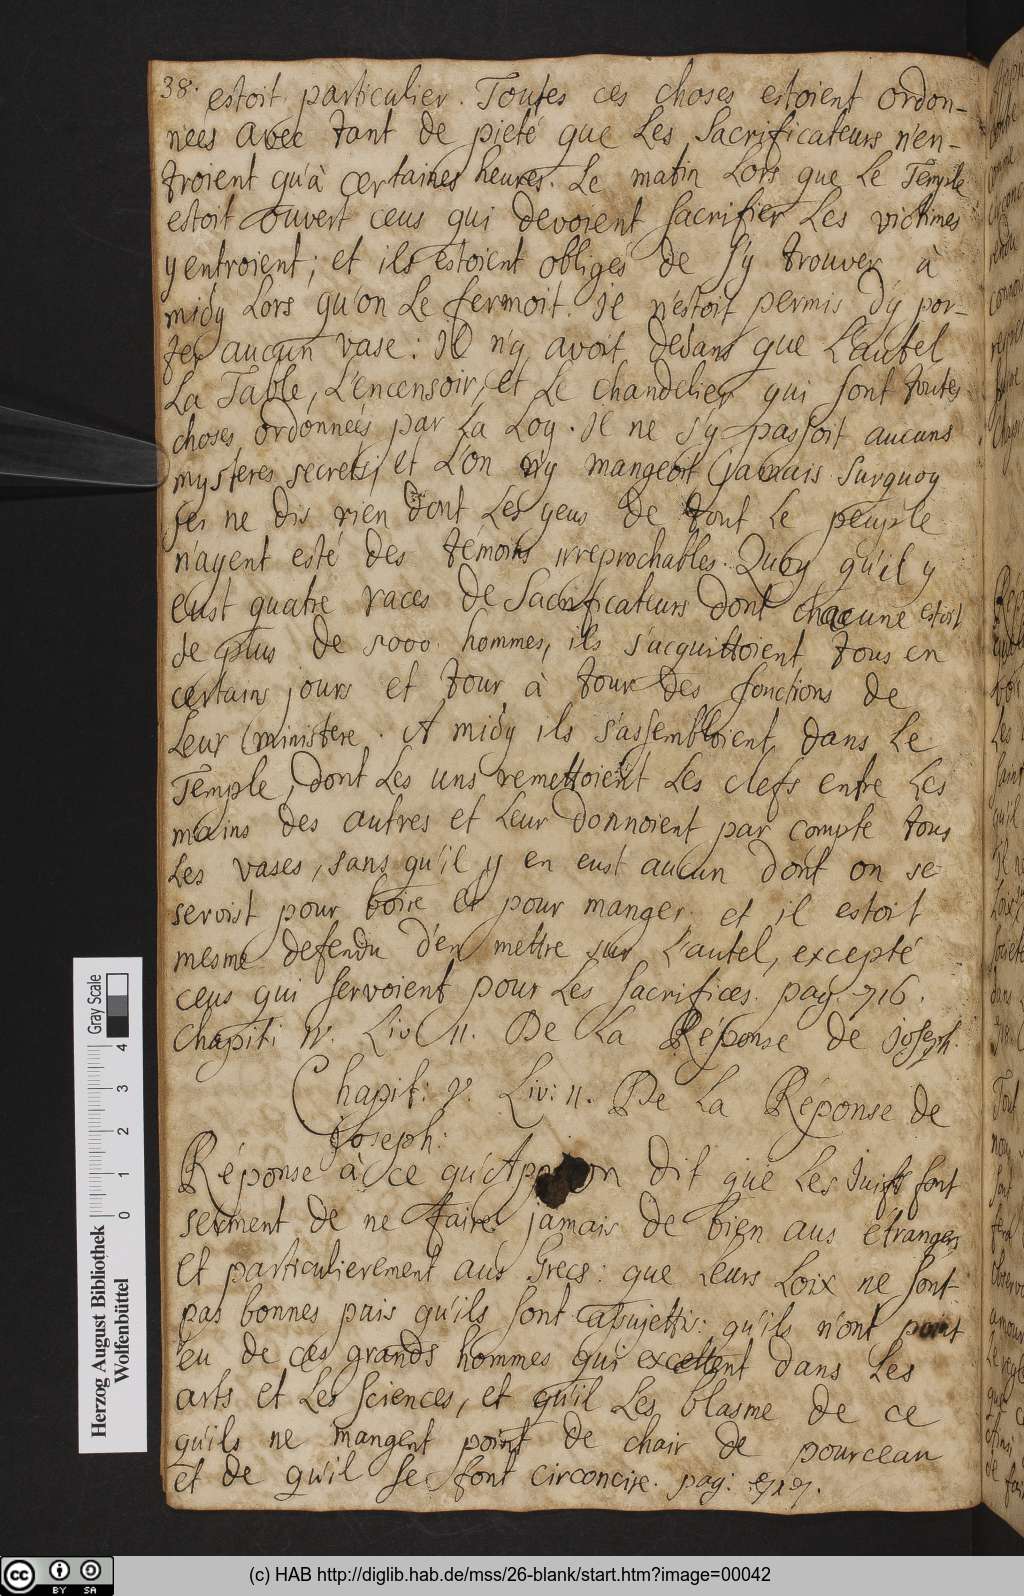 38. estoit particulier. Toutes ces choses estoient ordon-
nees avec tant de pieté que Les Sacrificateurs n'en-
troient qu'à certaines heures. Le matin Lors que Le Temple
estoit ouvert ceus qui devoient sacrifier Les victimes
y entroient; et ils estoient obligés de s'y trouver à
midy Lors qu'on Le fermoit. Il n'estoit permis d'y por-
ter aucun vase: Il n'y avoit dedans que L'autel
La Table, L'encensoir, et Le chandelier qui sont toutes
choses ordonnées par La Loy. Il ne s'y passoit aucuns
mysteres secrets, et L'on n'y mangeoit jamais. Surquoy
je ne dis rien dont Les yeus de tout Le peuple
n'ayent esté des témoins irreprochables. Quoy qu'il y
eust quatre races de Sacrificateurs dont chacune estoit
de plus de 5000. hommes, ils s'acquittoient tous en
certains jours et tour à tour des fonctions de
Leur ministere. A midy ils s'assembloient dans Le
Temple, dont Les uns remettoient Les clefs entre Les
mains des autres et Leur donnoient par compte tous
Les vases, sans qu'il y en eust aucun dont on se
servist pour boire et pour manger. et il estoit
mesme defendu d'en mettre sur L'autel, excepté
ceus qui servoient pour Les Sacrifices. pag. 716.
Chapit: IV. Liv II. De La Réponse de joseph.
Chapit: V. Liv: II. De La Réponse de
Joseph:
Réponse à ce qu'Appion dit que Les Juifs font
serment de ne faire jamais de bien aus étrangers
et particulierement aus Grecs: que Leurs Loix ne sont
pas bonnes puis qu'ils sont assujettis: qu'ils n'ont point
eu de ces grands hommes qui excellent dans Les
arts et Les sciences, et qu'il Les blasme de ce
qu'ils ne mangent point de chair de pourceau
et de qu'il se font circoncire. pag: 717.
Gray Scale
0 1 2 3 4
Herzog August Bibliothek
Wolfenbüttel
cc BY SA
(c) HAB http://diglib.hab.de/mss/26-blank/start.htm?image=00042